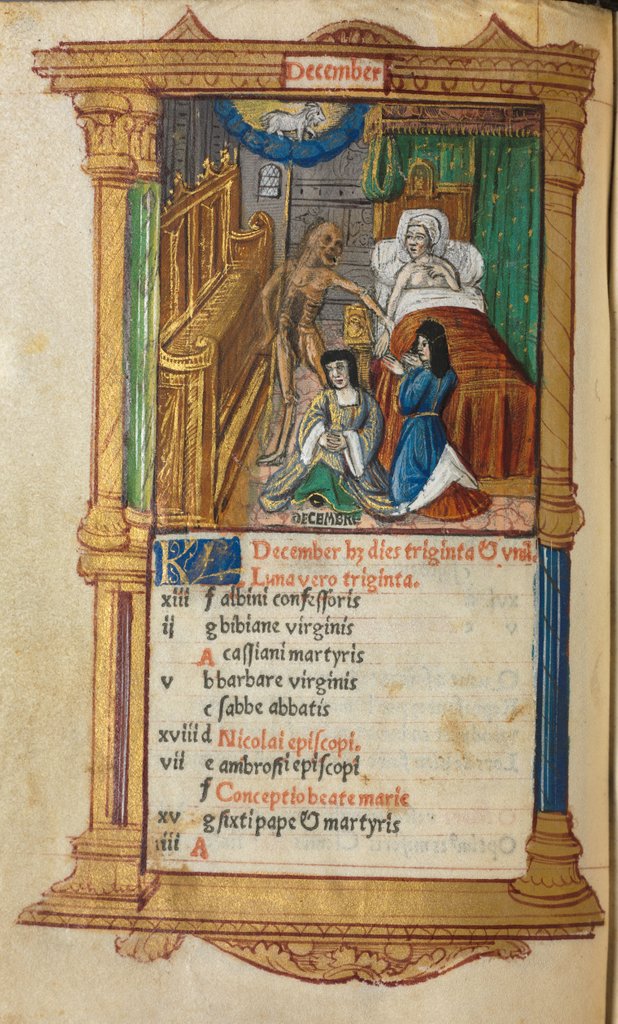 December
DECEMBRE
KL December hz dies triginta & vnū.
Luna vero triginta.
xiii f albini confessoris
ij g bibiane virginis
A cassiani martyris
v b barbare virginis
c sabbe abbatis
xviii d Nicolai episcopi.
vii e ambrosii episcopi
f Conceptio beate marie
xv g sixti pape & martyris
iiii A